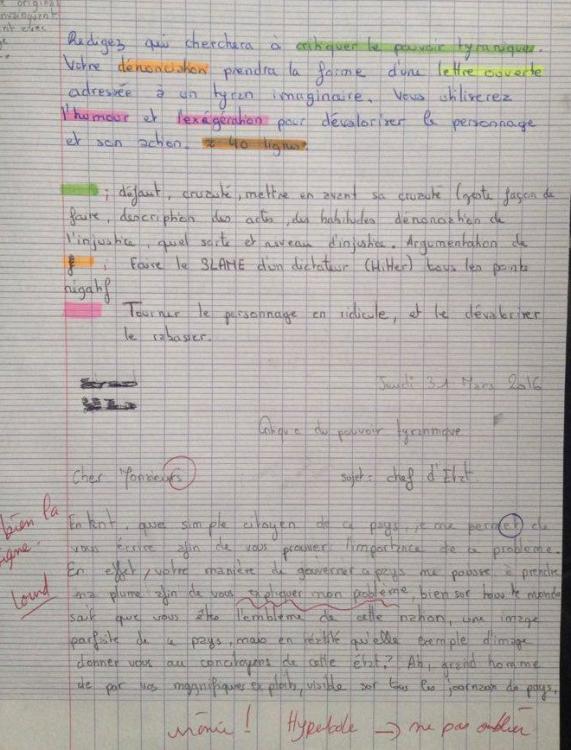 original
Redigez qui cherchera à critiquer le pouvoir tyranique.
Votre dénonciation prendra la forme d'une lettre ouverte
adressée à un tyran imaginaire. Vous utiliserez
l'humour et l'exégération pour dévaloriser le personnage
et son action. ≈ 40 lignes.
; défaut, cruauté, mettre en avant sa cruauté (geste façon de
faire, description des actes, des habitudes dénonciation de
l'injustice, quel sorte et niveau d'injustice. Argumentation de
Faire le SLAME d'un dictateur (Hitler) tous les points
négatif
Tourner le personnage en ridicule, et le dévaloriser
le rabaisser.
Jeudi 31 Mars 2016
Critique du pouvoir tyrannique
Cher Monsieurs sujet: chef d'Etat
bien la
ligne.
En tant, que simple citoyen de ce pays, je me permet de
vous écrire afin de vous prouver l'importance de ce problème.
En effet, votre manière de gouverner ce pays me pousse à prendre
Lourd
ma plume afin de vous expliquer mon problème, bien sur tous le monde
sait que vous être l'emblème de cette nation, une image
parfaite de ce pays, mais en réalité qu'elle exemple d'image
donner vous au concitoyens de cette état? Ah, grand homme
de par vos magnifiques exploits, visible sur tous les journaux de pays,
ironie ! Hyperbole → ne pas oublier